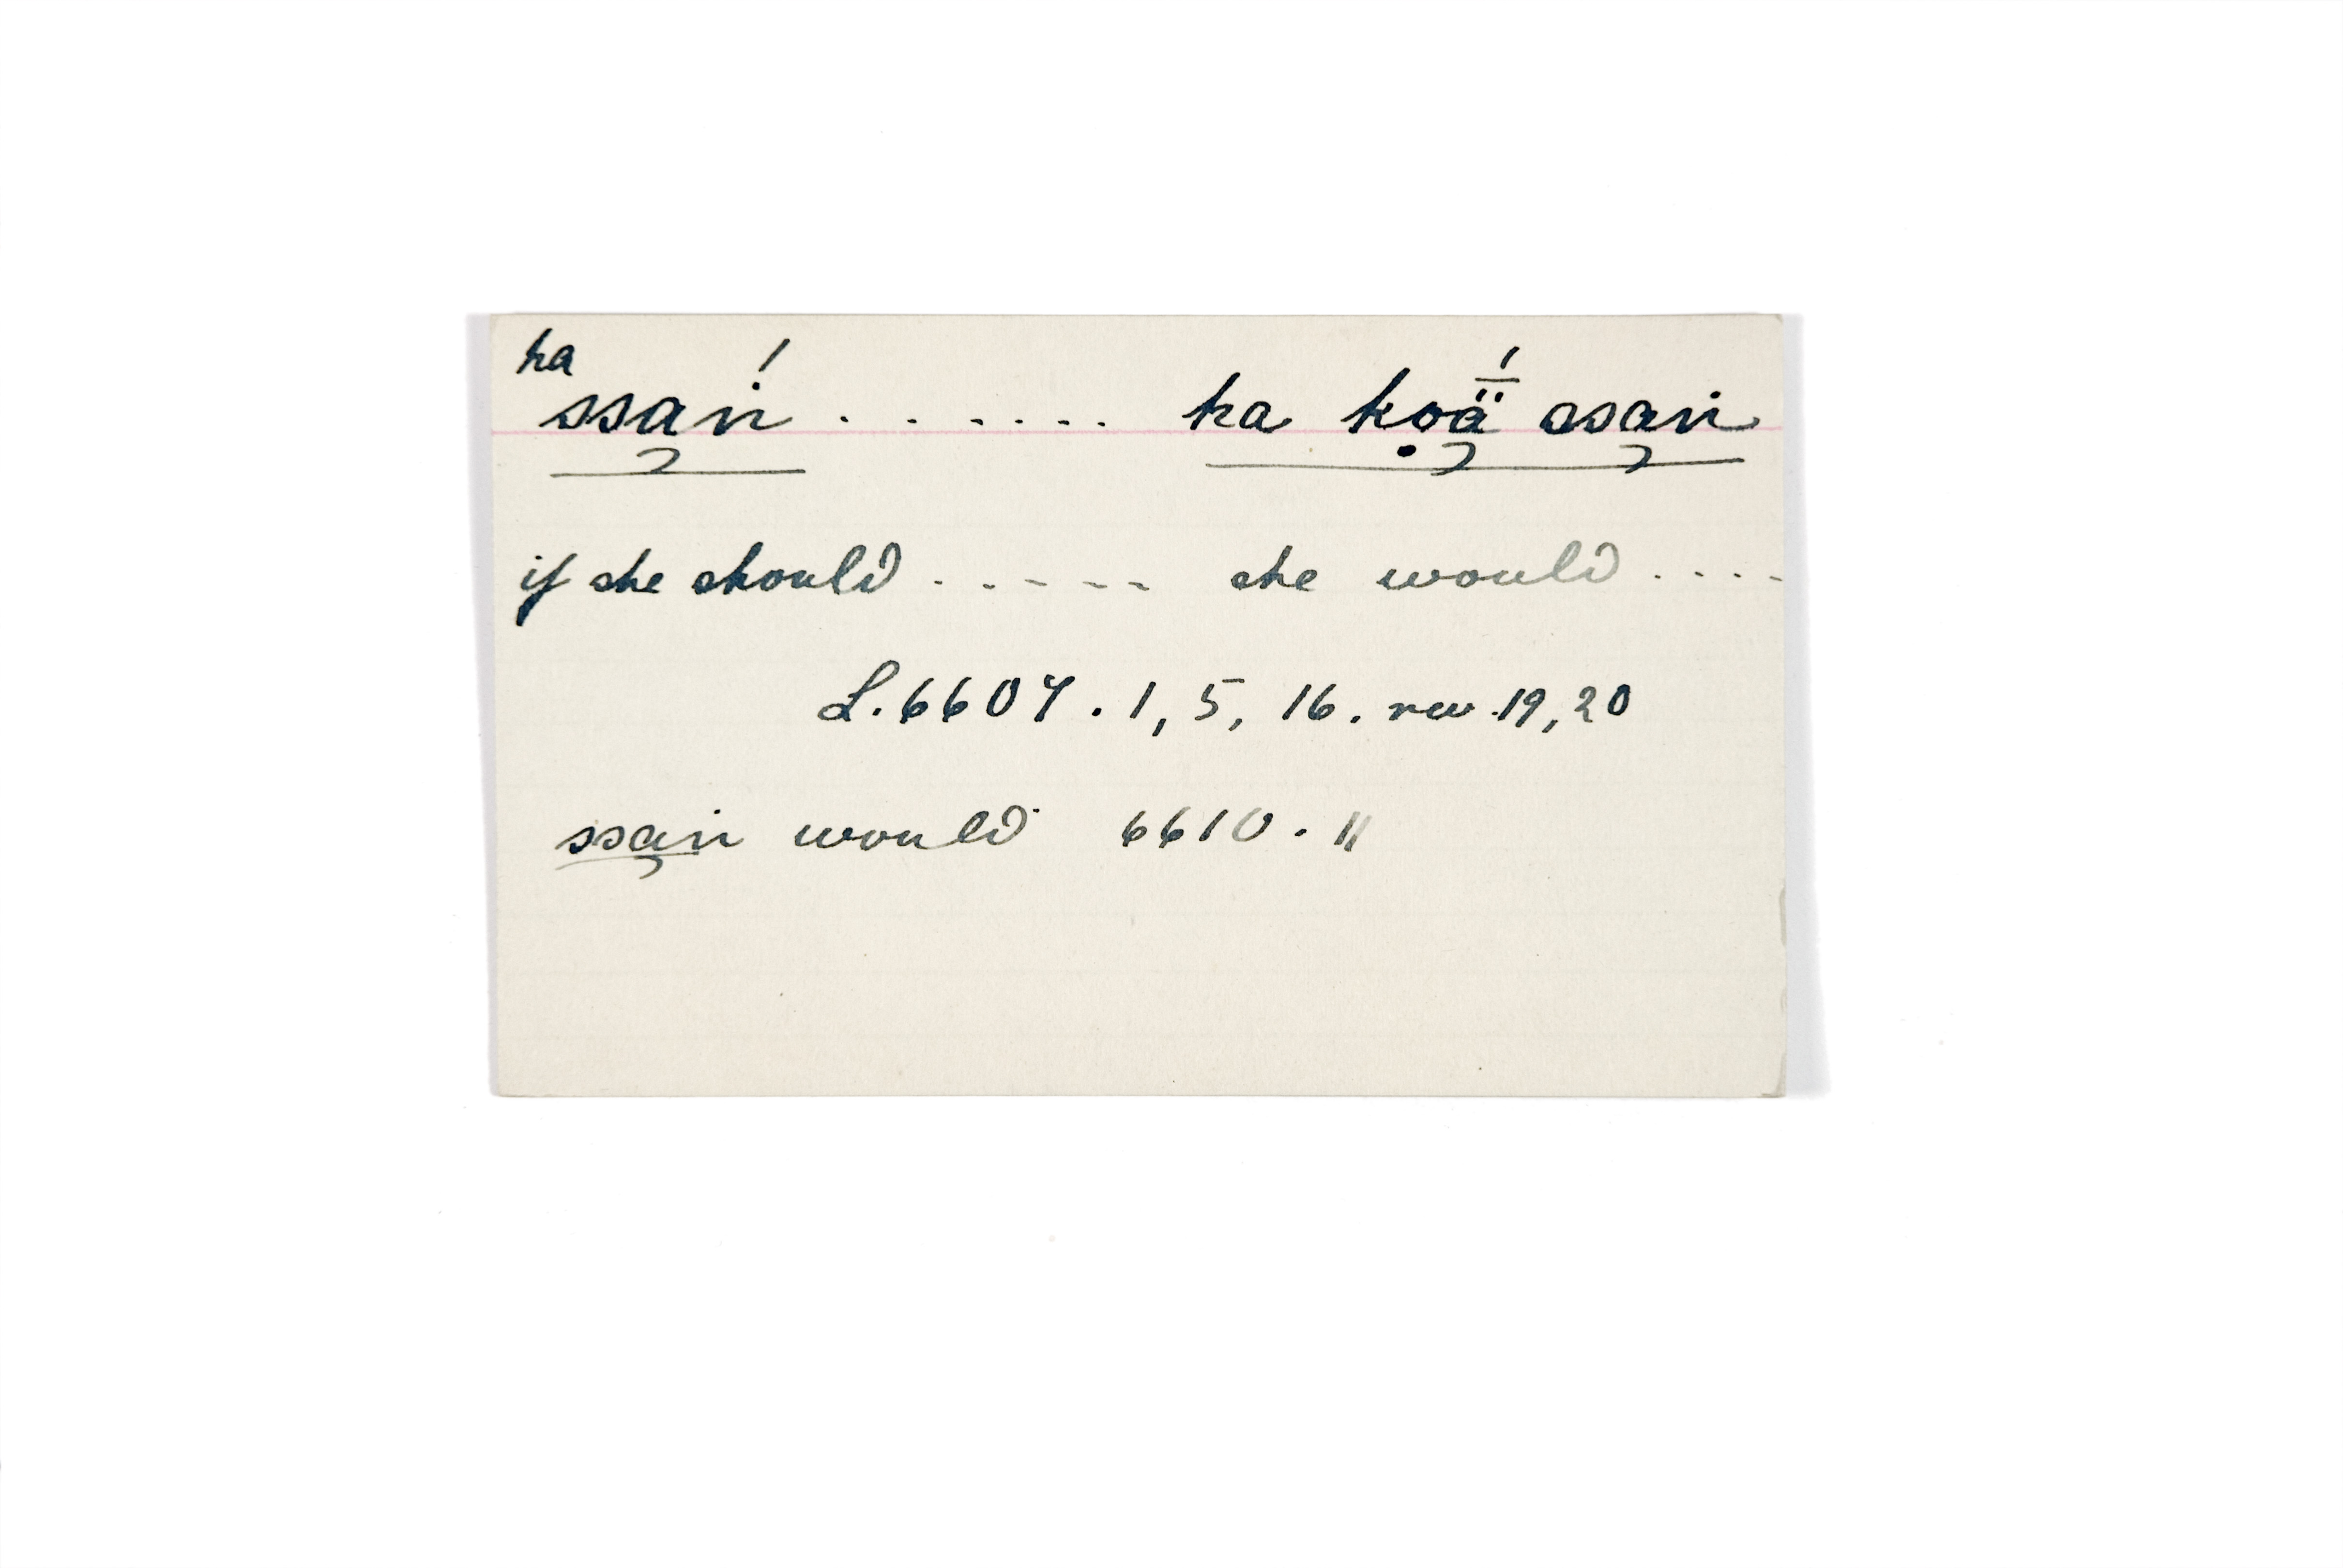 ha
ssa̢ṅ́ . . . . . . . ha ḳoä̢́ ssa̢ṅ
if she should . . - - - she would . . . .
L. 6607 . 1, 5, 16. rev. 19, 20
ssa̢ṅ would 6610 . 11